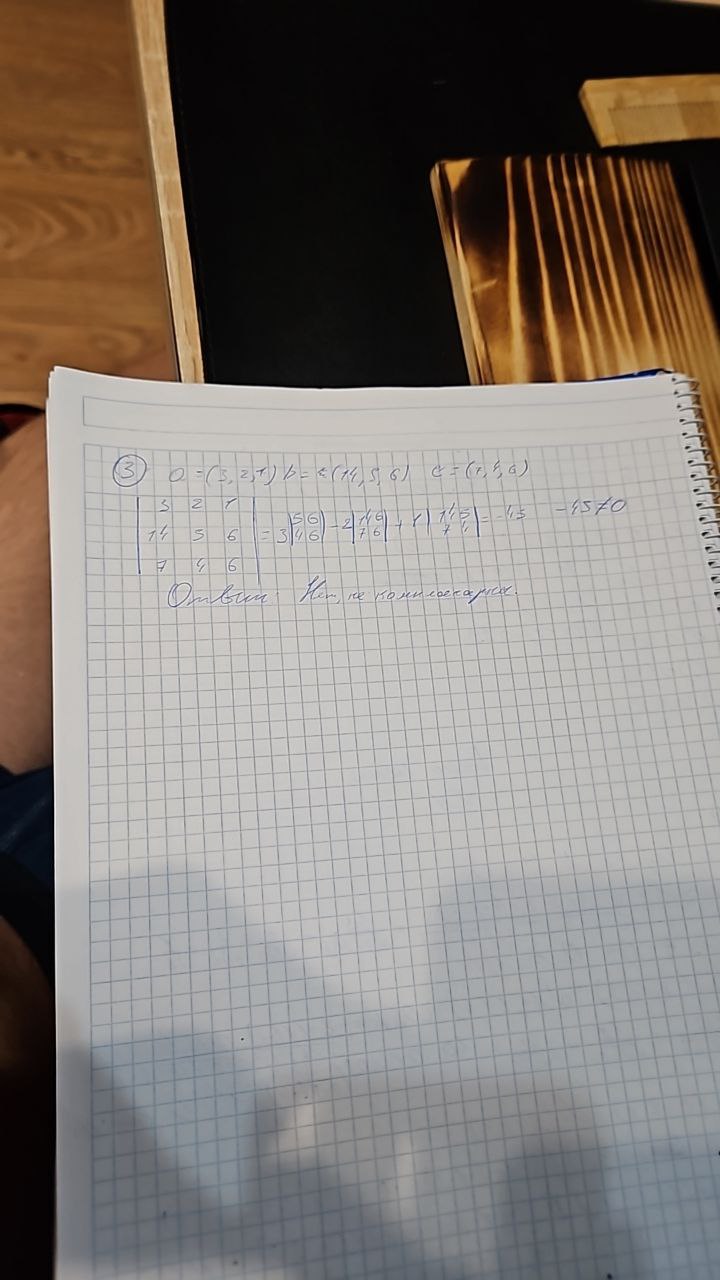 3 a = (3, 2, 1) b = (14, 5, 6) c = (7, 4, 6)
|3 2 1|
|14 5 6| = 3|5 6 4 6| - 2|14 6 7 6| + 1|14 5 7 4| = -45 -45≠0
|7 4 6|
Ответ: Нет, не компланарны.